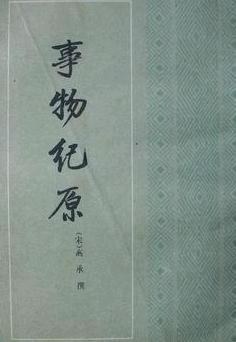 事物纪原
〔宋〕高 承 撰